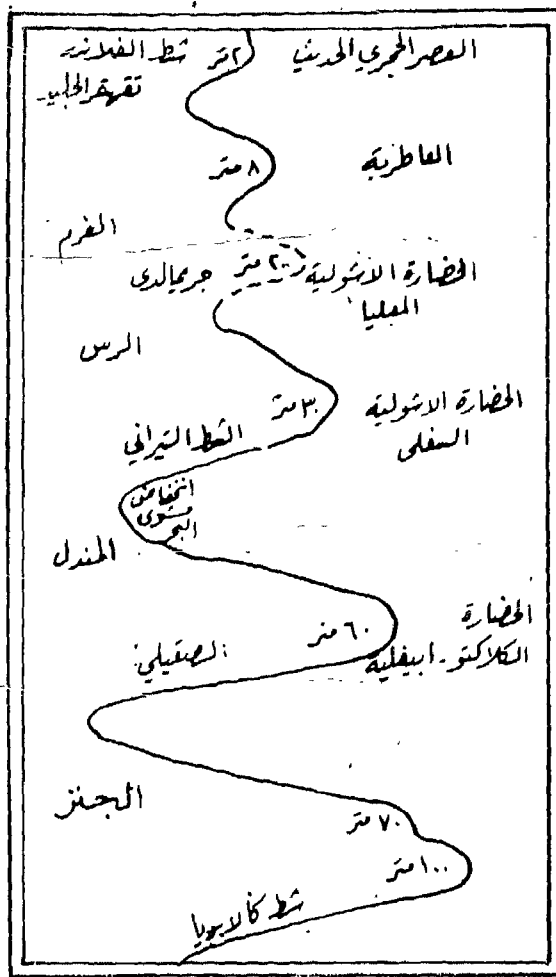 العصر الحجري الحديث
٢ متر شط الفلاندر
تقهقر الجليد
العاطرية
٨ متر
الفرم
الحضارة الاشولية
العليا
٢٠ متر
جريمالدى
الرس
الحضارة الاشولية
السفلى
٣٠ متر
الشط التيراني
انخفاض
مستوى
البحر
المندل
الحضارة
الكلاكتو - ابيفلية
٦٠ متر
الصقيلي
الجنز
٧٠ متر
١٠٠ متر
شط كالابريا